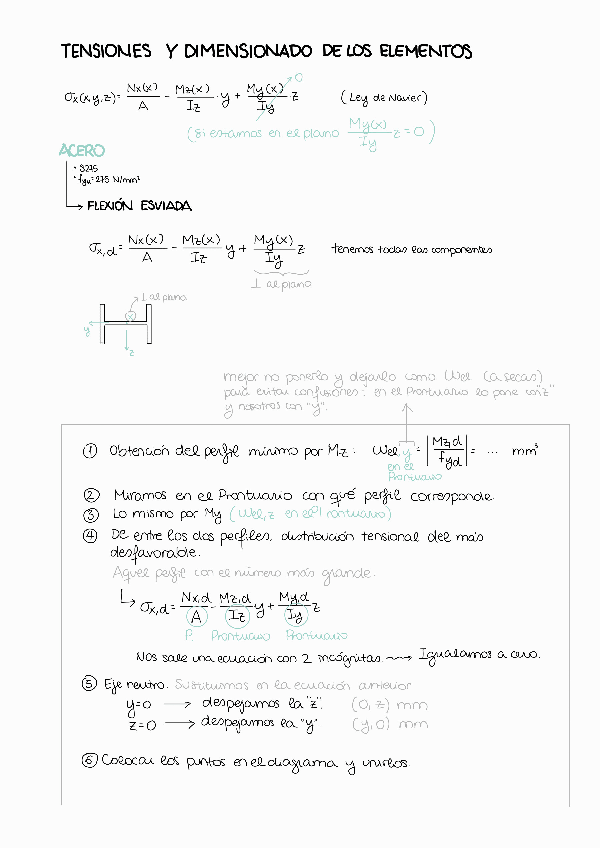 TENSIONES Y DIMENSIONADO DE LOS ELEMENTOS
σx(x,y,z)= Nx(x)/A − Mz(x)/Iz · y + My(x)/Iy z 0 (Ley de Navier)
(Si estamos en el plano My(x)/Iy z = 0)
ACERO
• S275
• fyk=275 N/mm²
FLEXIÓN ESVIADA
σx,d = Nx(x)/A − Mz(x)/Iz y + My(x)/Iy z tenemos todas las componentes
⊥ al plano
⊥ al plano
x
y
z
mejor no ponerlo y dejarlo como Wel (a secas)
para evitar confusiones: en el Prontuario lo pone con "z"
y nosotros con "y".
① Obtención del perfil mínimo por Mz: Wel,y = |Mz,d/fyd| = ... mm³
en el
Prontuario
② Miramos en el Prontuario con qué perfil corresponde.
③ Lo mismo por My (Wel,z en el Prontuario)
④ De entre los dos perfiles, distribución tensional del más
desfavorable.
Aquel perfil con el número más grande.
σx,d = Nx,d/A − Mz,d/Iz y + My,d/Iy z
P. Prontuario Prontuario
Nos sale una ecuación con 2 incógnitas → Igualamos a cero.
⑤ Eje neutro. Sustituimos en la ecuación anterior
y=0 → despejamos la "z". (0, z) mm
z=0 → despejamos la "y" (y, 0) mm
⑥ Colocar los puntos en el diagrama y unirlos.